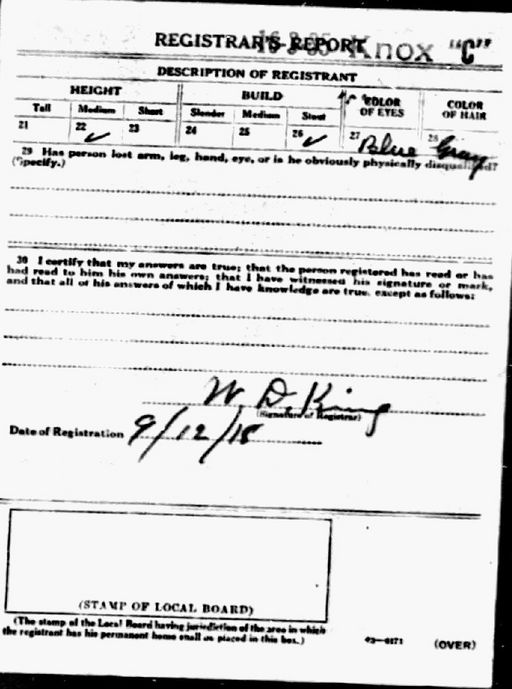 REGISTRAR'S REPORT Knox "C"
DESCRIPTION OF REGISTRANT
HEIGHT BUILD COLOR OF EYES COLOR OF HAIR
Tall Medium Short Slender Medium Stout
21 22 ✓ 23 24 25 26 ✓ 27 Blue 28 Gray
29 Has person lost arm, leg, hand, eye, or is he obviously physically disqualified?
(Specify.)
30 I certify that my answers are true; that the person registered has read or has
had read to him his own answers; that I have witnessed his signature or mark,
and that all of his answers of which I have knowledge are true, except as follows:
W. D. King
(Signature of Registrar)
Date of Registration 9/12/18
(STAMP OF LOCAL BOARD)
(The stamp of the Local Board having jurisdiction of the area in which
the registrant has his permanent home shall be placed in this box.)
03—6171 (OVER)